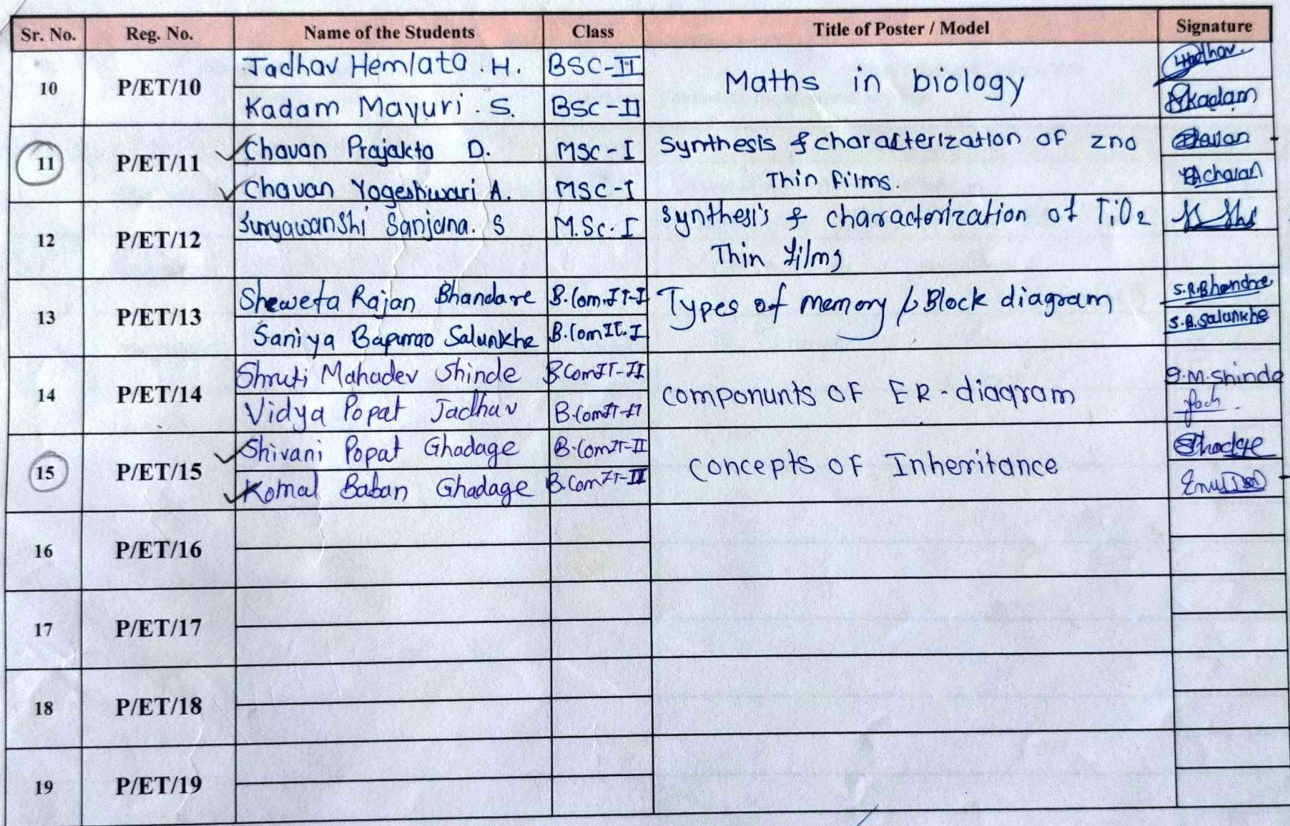 Sr. No. Reg. No. Name of the Students Class Title of Poster / Model Signature
10 P/ET/10 Jadhav Hemlata .H. BSC-II Maths in biology
Kadam Mayuri . S. BSC-II kadam
11 P/ET/11 Chavan Prajakta D. MSC-I Synthesis & characterization of zno
Thin films.
Chavan Yogeshwari A. MSC-I
12 P/ET/12 Suryawanshi Sanjana. S M.Sc-I Synthesis & characterization of TiO2
Thin films
13 P/ET/13 Sheweta Rajan Bhandare B.Com.IT-I Types of memory / Block diagram S.R.Bhandre
Saniya Bapurao Salunkhe B.ComIT-I S.B.Salunkhe
14 P/ET/14 Shruti Mahadev Shinde B.ComIT-II componunts OF ER-diagram S.M.Shinde
Vidya Popat Jadhav B.ComIT-II
15 P/ET/15 Shivani Popat Ghadage B.ComIT-II concepts of Inheritance
Komal Baban Ghadage B.ComIT-II
16 P/ET/16
17 P/ET/17
18 P/ET/18
19 P/ET/19